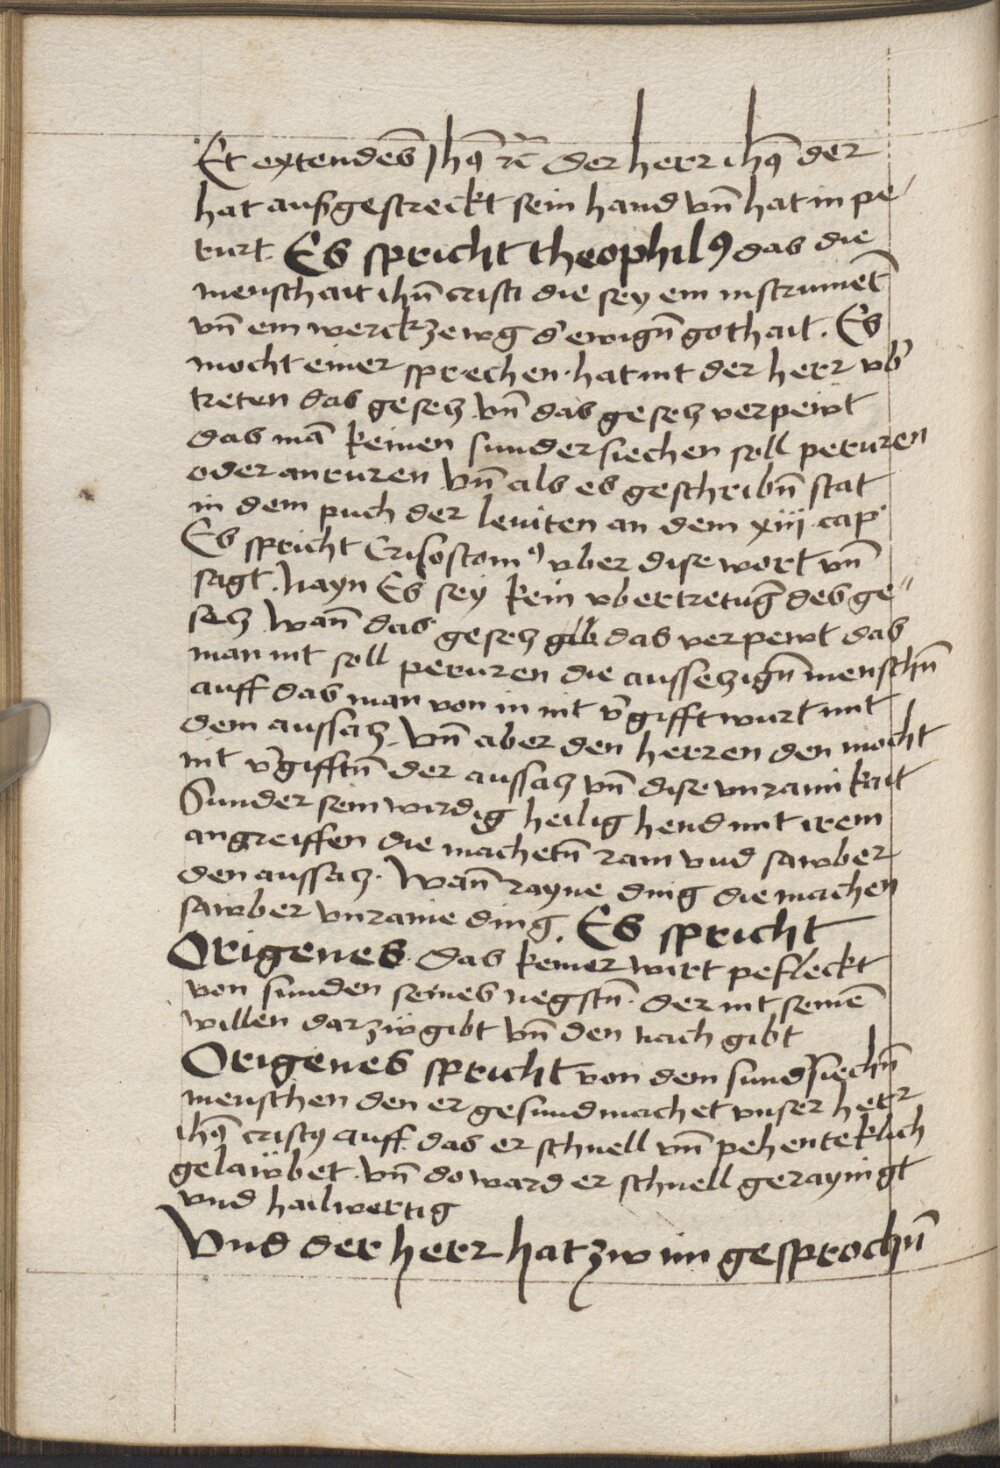 Et extendēs Jhq̄ rc̄ der herr ihq̄ der
hat außgestreckt sein hand vn̄ hat in pe/
rurt. Es spricht theophilꝯ das die
menschait ihū cristi die sey ein instrumēt
vn̄ ein werckzewg d' ewign̄ gothait. Es
mocht einer sprechen. hat nit der herr vb'
treten das gesecz vn̄ das gesecz verpewt
das mā keinen sunder siechen soll peruren
oder anruren vn̄ als es geschribn̄ stat
in dem puch der leuiten an dem xiij. cap'
Es spricht Crisostomꝯ vber dise wort vn̄
sagt. Nayn Es sey kein vbertretūg des ge"
secz wan̄ das gesecz gib das verpewt das
man nit soll peruren die ausseczign̄ menschn̄
auff das man von in nit v'gifft wurt mit
dem aussacz. Vn̄ aber den herren den mocht
nit v'gifftn̄ der aussacz vn̄ dise vnrainikait
Sunder sein wirdig heilig hend mit irem
angreiffen die machetn̄ rain vnd sawber
den aussacz. Wan̄ rayne ding die machen
sawber vnraine ding. Es spricht
Origenes. das keiner wirt pefleckt
von sunden seines negstn̄. der nit seinē
willen darzw gibt vn̄ den nach gibt
Origenes spricht von dem sundsiechn̄
menschen den er gesund machet vnser herr
ihq̄ cristꝯ auff das er schnell vn̄ pehenteklich
gelawbet. vn̄ do ward er schnell geraynigt
vnd hailwertig
Vnd der herr hat zw im gesprochn̄